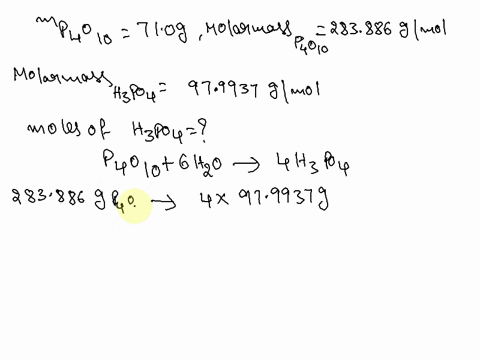 mP4O10 = 71.0g, Molarmass P4O10 = 283.886 g/mol
Molarmass H3PO4 = 97.9937 g/mol
moles of H3PO4 = ?
P4O10 + 6H2O → 4H3PO4
283.886 g P4O. → 4 × 97.9937g